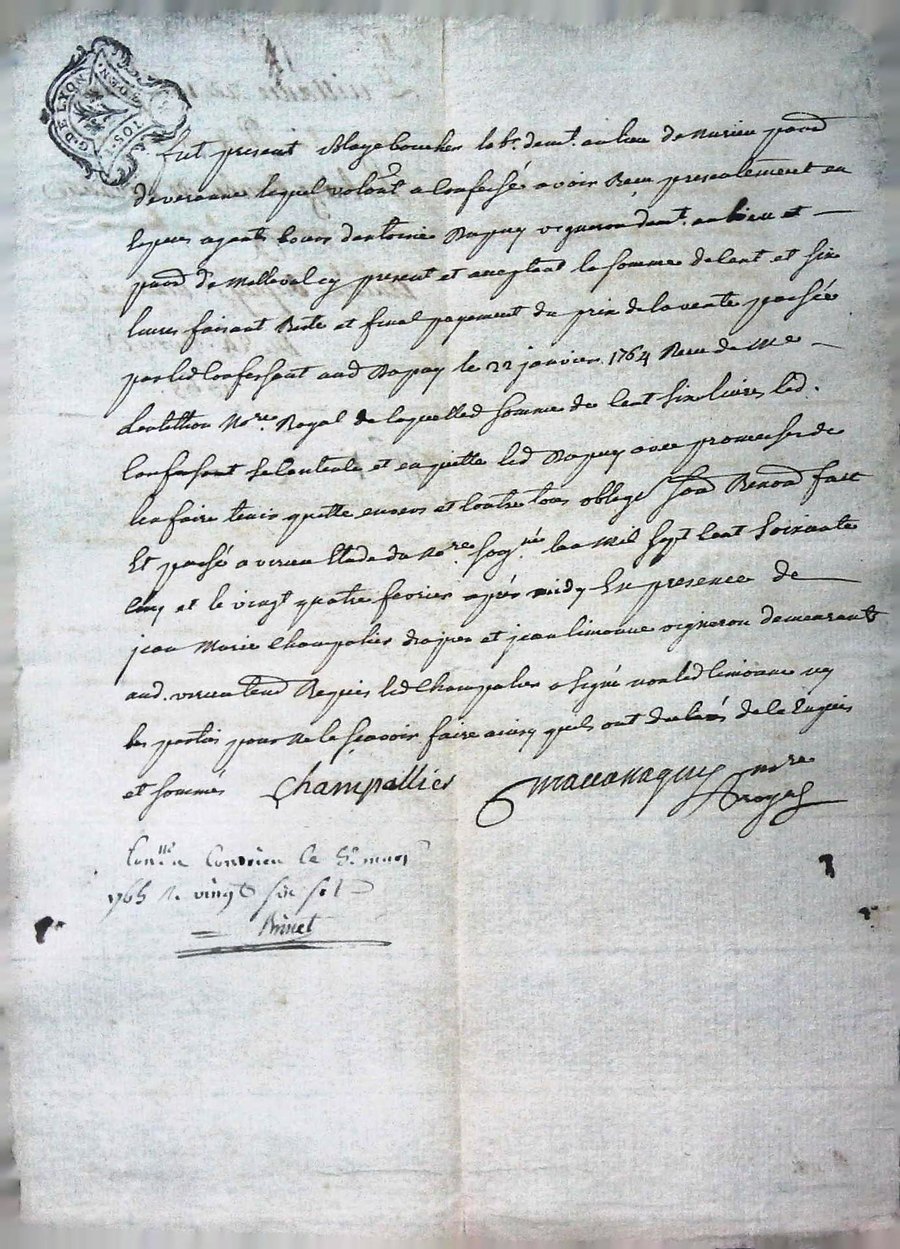 G. DE LYON
1. SOL
DEN.
fut present Blaye boucher lab.r dem.t au lieu de Murieu parr
de veranne lequel volont a Confessé avoir Reçu presentement en
especes agents Cours d'antoine Dupuy vigneron dem.t au Lieu et
parr de Malleval cy present et acceptant la somme de Cent et six
livres faisant Reste et final payement du prix de la vente passée
par led Confessant aud Dupuy le 22 janvier 1764 Recu de Me
Nore Royal de laquelled somme de Cent six livres led.
Confessant se Contente et en quitte led Dupuy avec promesse de
l'en faire tenir quitte envers et Contre tous oblige soud Renond fait
Et passé a virieu Etude du Nore Sousné l'an Mil Sept Cent Soixante
Cinq et le vingt quatre fevrier après midy En presence de
jean Marie Champalier drapier et jean limoune vigneron demeurants
aud. virieu temd Requis led Champalier a signé non led limoune ny
les parties pour ne le sçavoir faire ainsy quils ont declaré de ce Enquis
et sommés Champallier nore
royal
Con.lle a Condrieu le 5e mars
1765 R. vingt six sols
Binet